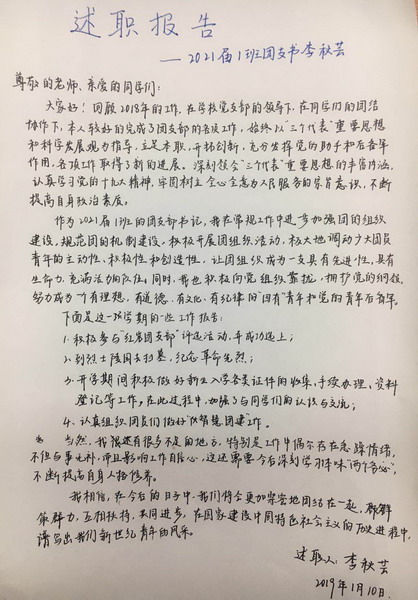 述职报告
——2021届1班团支书李秋芸
尊敬的老师、亲爱的同学们:
大家好!回顾2018年的工作,在学校党支部的领导下,在同学们的团结
协作下,本人较好的完成了团支部的各项工作,始终以“三个代表”重要思想
和科学发展观为指导,立足本职,开拓创新,充分发挥党的助手和后备军
作用,各项工作取得了新的进展。深刻领会“三个代表”重要思想的丰富内涵,
认真学习党的十九大精神,牢固树立全心全意为人民服务的宗旨意识,不断
提高自身政治素质。
作为2021届1班的团支部书记,我在常规工作中进一步加强团的组织
建设,规范团的机制建设,积极开展团组织活动,极大地调动了广大团员
青年的主动性、积极性和创造性,让团组织成为一支具有先进性,具有
生命力,充满活力的队伍。同时,我也积极向党组织靠拢,拥护党的纲领,
努力成为一个有理想、有道德、有文化、有纪律的“四有”青年和党的青年后备军。
下面是这一改学期的一些工作报告:
1.积极参与“红旗团支部”评选活动,并成功选上;
2.到烈士陵园去扫墓,纪念革命先烈;
3.开学期间积极做好新生入学各类证件的收集,手续办理、资料
登记等工作,在此过程中,加强了与同学们的认识与交流;
4.认真组织团员们做好“智慧团建”工作。
当然,我还有很多不足的地方,特别是工作中偶尔存在急躁情绪,
不但与事无补,而且影响工作自信心,这还需要今后深刻学习体味“两个务必”,
不断提高自身人格修养。
我相信,在今后的日子中,我们将会更加紧密地团结在一起,
策群力,互相扶持,共同进步,在国家建设中国特色社会主义的历史进程中,
谱写出我们新世纪青年的风采。
述职人:李秋芸
2019年1月10日.